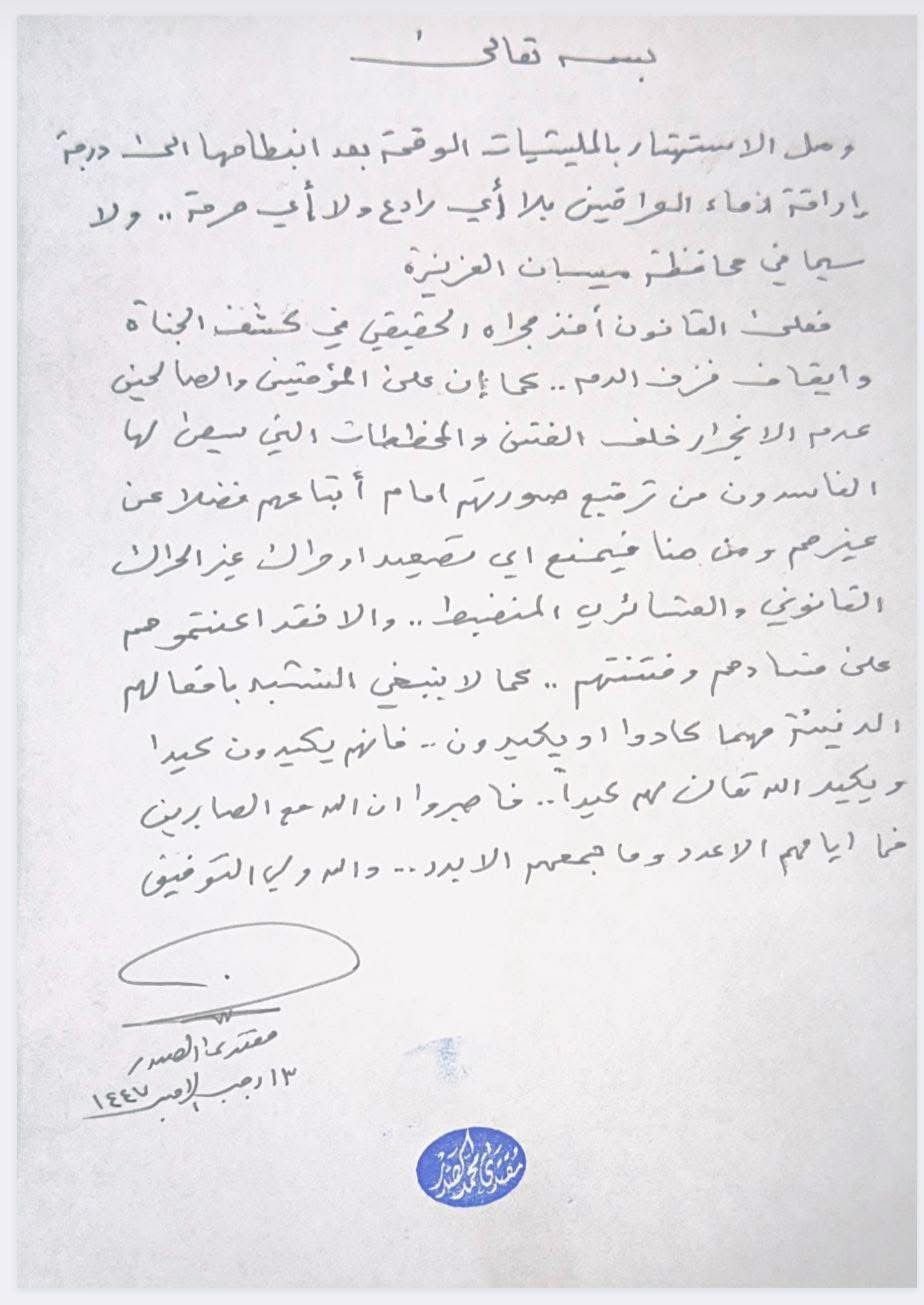 بسمه تعالى
وصل الاستهتار بالمليشيات الوقحة بعد انبطاحها الى درجة
إراقة دماء العراقيين بلا أي رادع ولا أي حرمة .. ولا
سيما في محافظة ميسان العزيزة
فعلى القانون أخذ مجراه الحقيقي في كشف الجناة
وايقاف نزف الدم .. كما إن على المؤمنين والصالحين
عدم الانجرار خلف الفتن والمخططات التي يسعى لها
الفاسدون من ترقيع صورتهم امام أتباعهم فضلا عن
غيرهم ومن هنا فيمنع اي تصعيد او حراك غير الحراك
القانوني والعشائري المنضبط .. والا فقد اعنتموهم
على فسادهم وفتنتهم .. كما لا ينبغي التشبه بافعالهم
الدنيئة مهما كادوا او يكيدون .. فانهم يكيدون كيدا
ويكيد الله تعالى لهم كيداً .. فاصبروا ان الله مع الصابرين
فما ايامهم الا عدد وما جمعهم الا بدد .. والله ولي التوفيق
مقتدى الصدر
١٣ رجب الاصب ١٤٤٧
مقتدى محمد الصدر